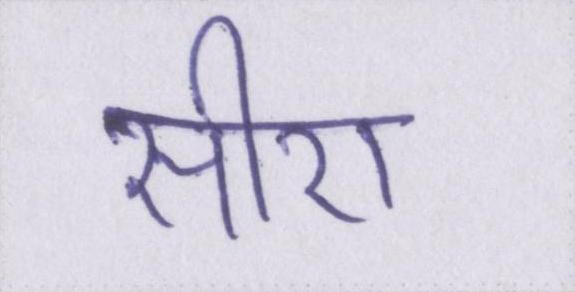 सीरा